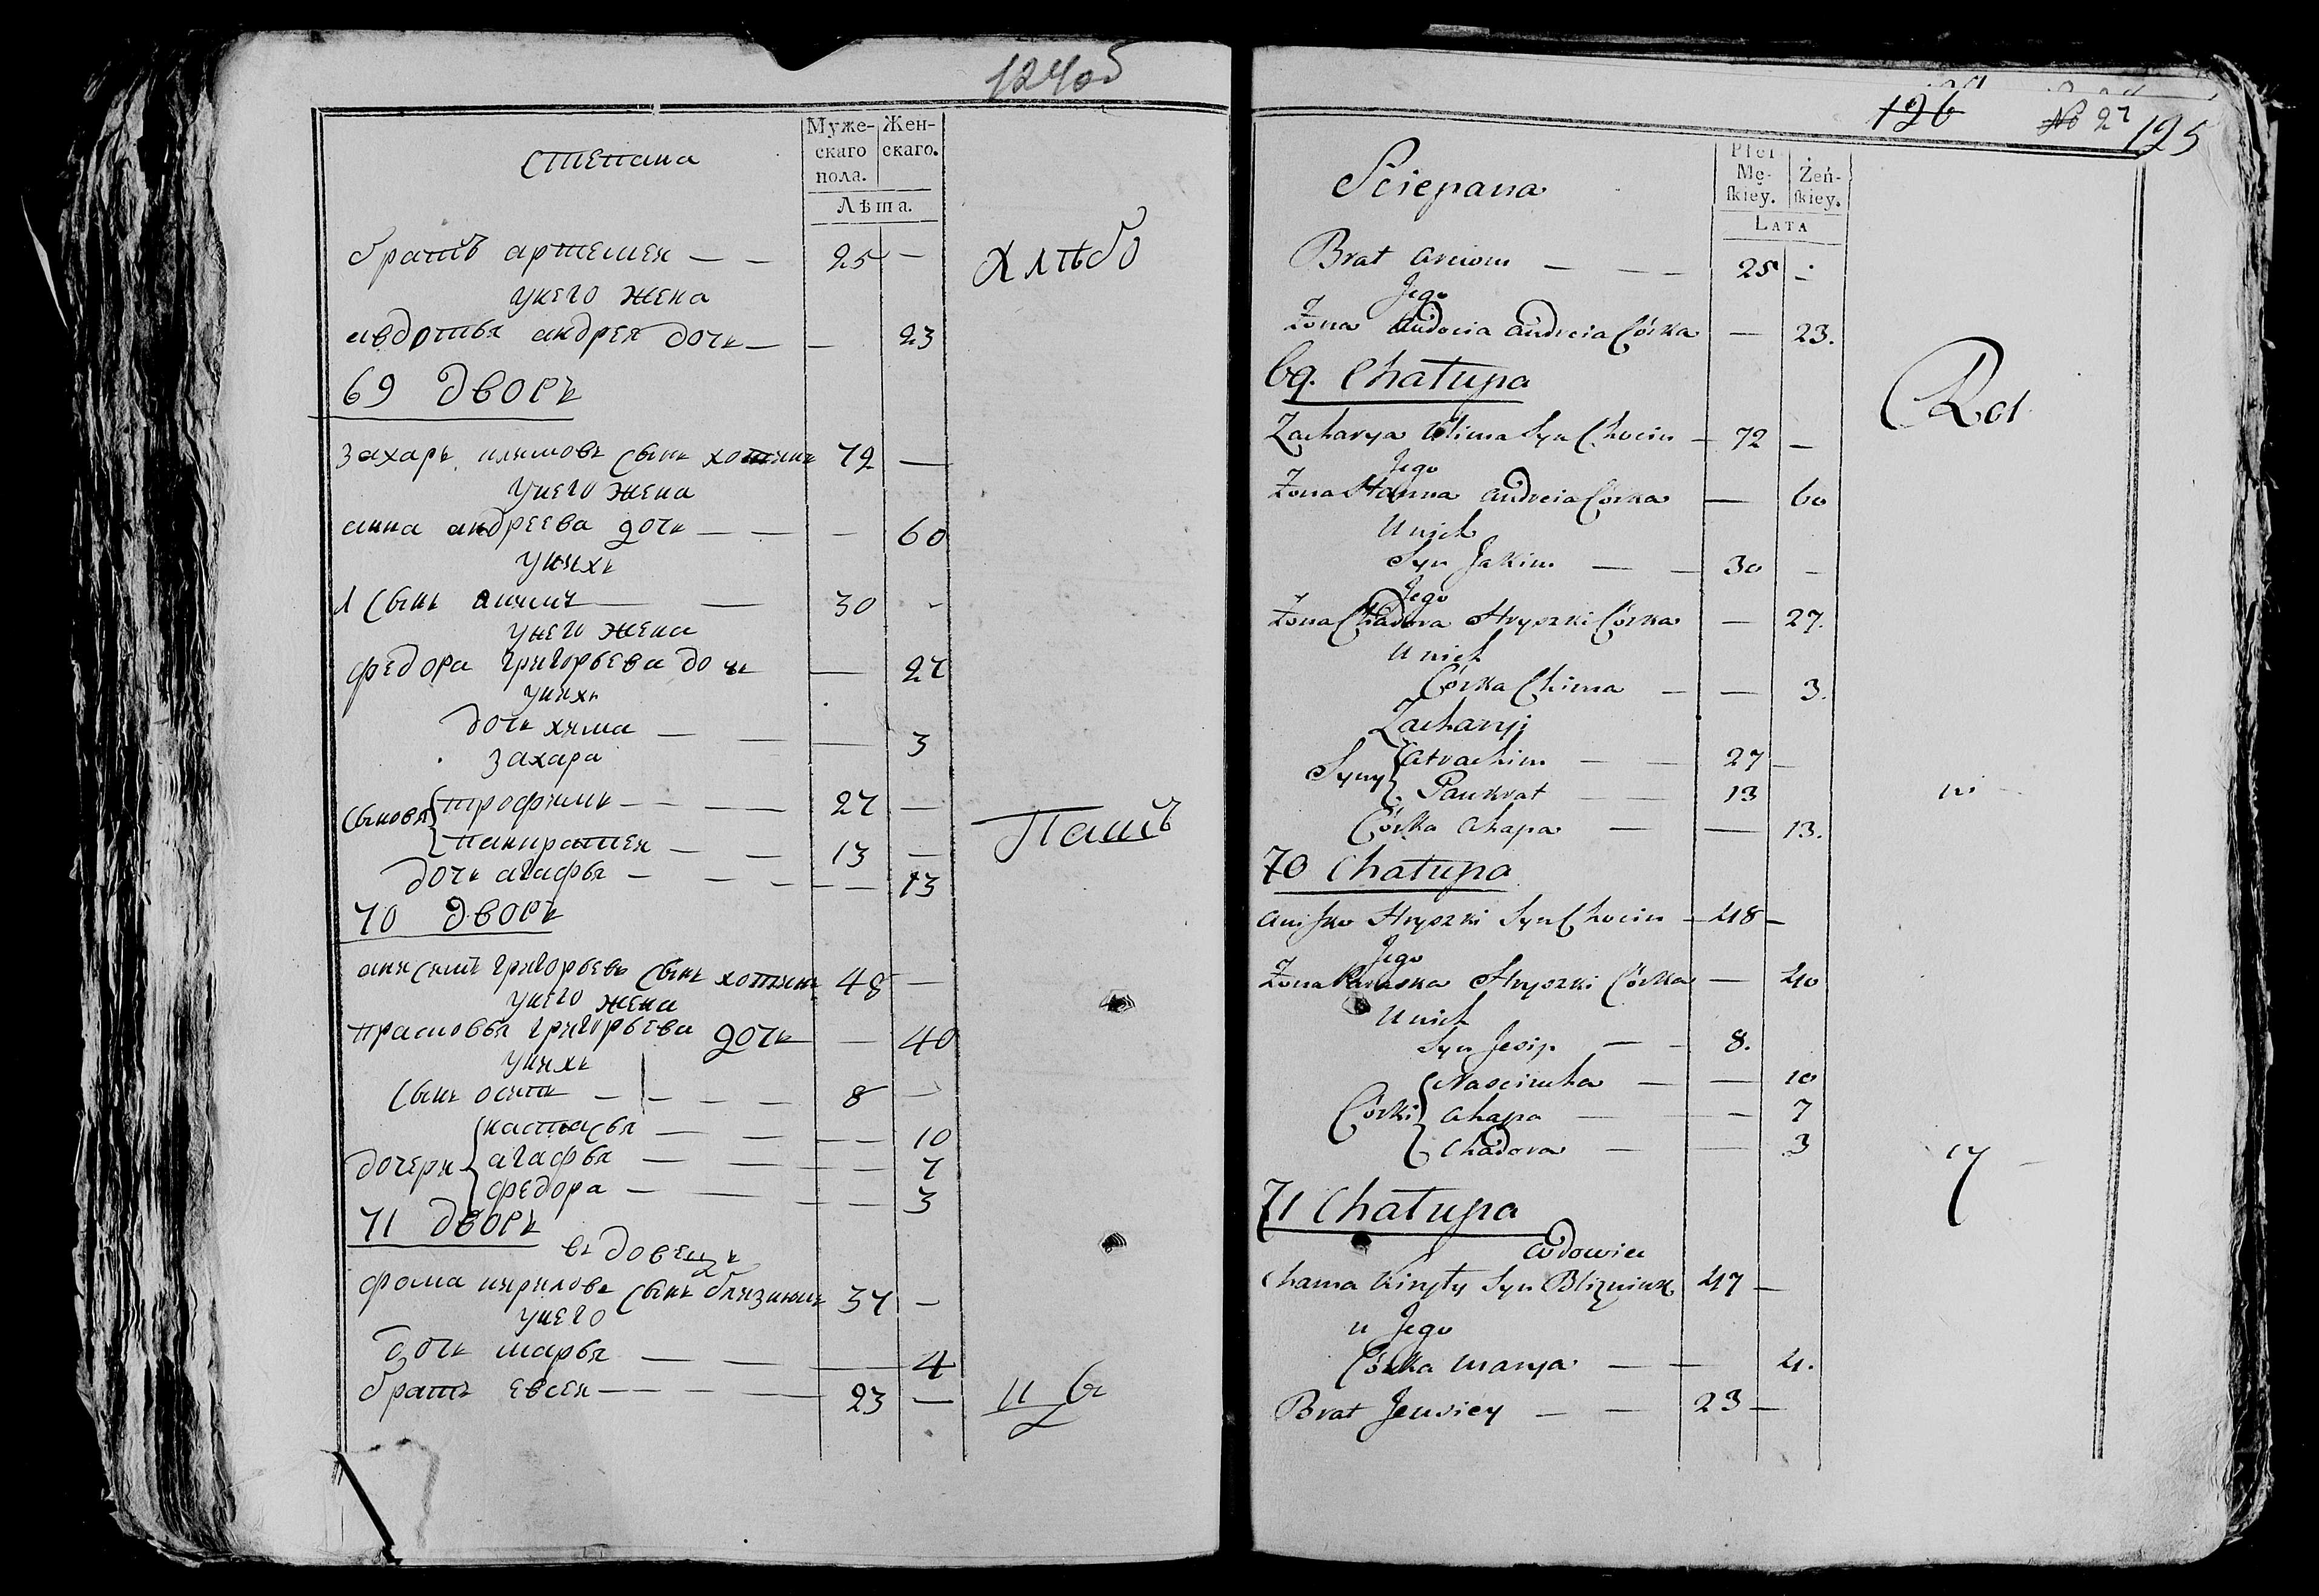 124об
Муже-
скаго
пола.
Жен-
скаго.
Лѣта.
степана
братъ артемеи — — 25 —
хлѣбо
унего жена
авдотья андрея дочь — — 23
69 дворъ
захаръ климовъ сынъ хотинъ 72 —
унего жена
анна андреева дочь — — — 60
унихъ
сынъ акимъ — — 30 -
унего жена
федора григорьева дочь — 27
унихъ
дочь хима — — — 3
захара
сыновя { трофимъ — — — 27 —
панкратеи — — 13 —
Пашъ
дочь агафья — — — — — 13
70 дворъ
анисимъ григорьевъ сынъ хотинъ 48 —
унего жена
прасковья григорьева дочь — 40
унихъ
сынъ осипъ — — — — 8 —
дочери { настасья — — — — 10
агафья — — — — 7
федора — — — — 3
71 дворъ
въдовецъ
фома кирилов сынъ близнюкъ 37 —
унего
дочь марья — — — 4
братъ евсеи — — — — 23 —
126
№ 27
125
Płci
Mę-
skiey.
Żeń-
skiey.
LATA
Sciepana
Brat Arciom — — — 25 -
Jego
Zona Audocia Andreia Córka — 23.
69. Chałupa
Zacharya Klima Syn Chocin — 72 —
Jego
Zona Hanna Andreia Córka — 60
U nich
Syn Jakim — — 30 -
Jego
Zona Chadora Hryszki Córka — 27.
U nich
Córka Chima — — 3.
Zacharyi
Syny { Atrachim — — 27 —
Pankrat — — 13
Córka Ahapa — — 13.
70 Chałupa
Anisko Hryszki Syn Chocin — 48 —
Jego
Zona Paraska Hryszki Córka — 40
U nich
Syn Jesip — — 8.
Córki { Nasciucha — — 10
Ahapa — — 7
Chadora — — 3
71 Chałupa
Wdowiec
Chama Kiryły Syn Blizniuk 47 —
u Jego
Córka Marya — — 4.
Brat Jeusiey — — 23 —